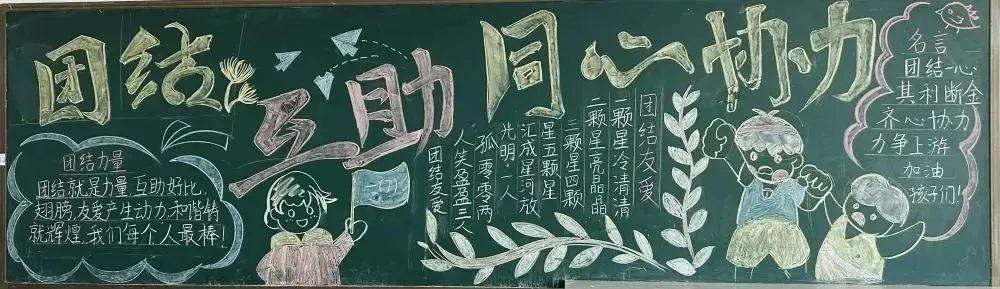 团结互助 同心协力
团结力量
团结就是力量,互助好比
翅膀,友爱产生动力,和谐铸
就辉煌,我们每个人最棒!
团结友爱
一颗星冷清清
二颗星亮晶晶
三颗星四颗
星五颗星
汇成星河放
光明。一人
孤零零两
人笑盈盈三人
团结友爱
名言
团结一心
其利断金
齐心协力
力争上游
加油
孩子们!